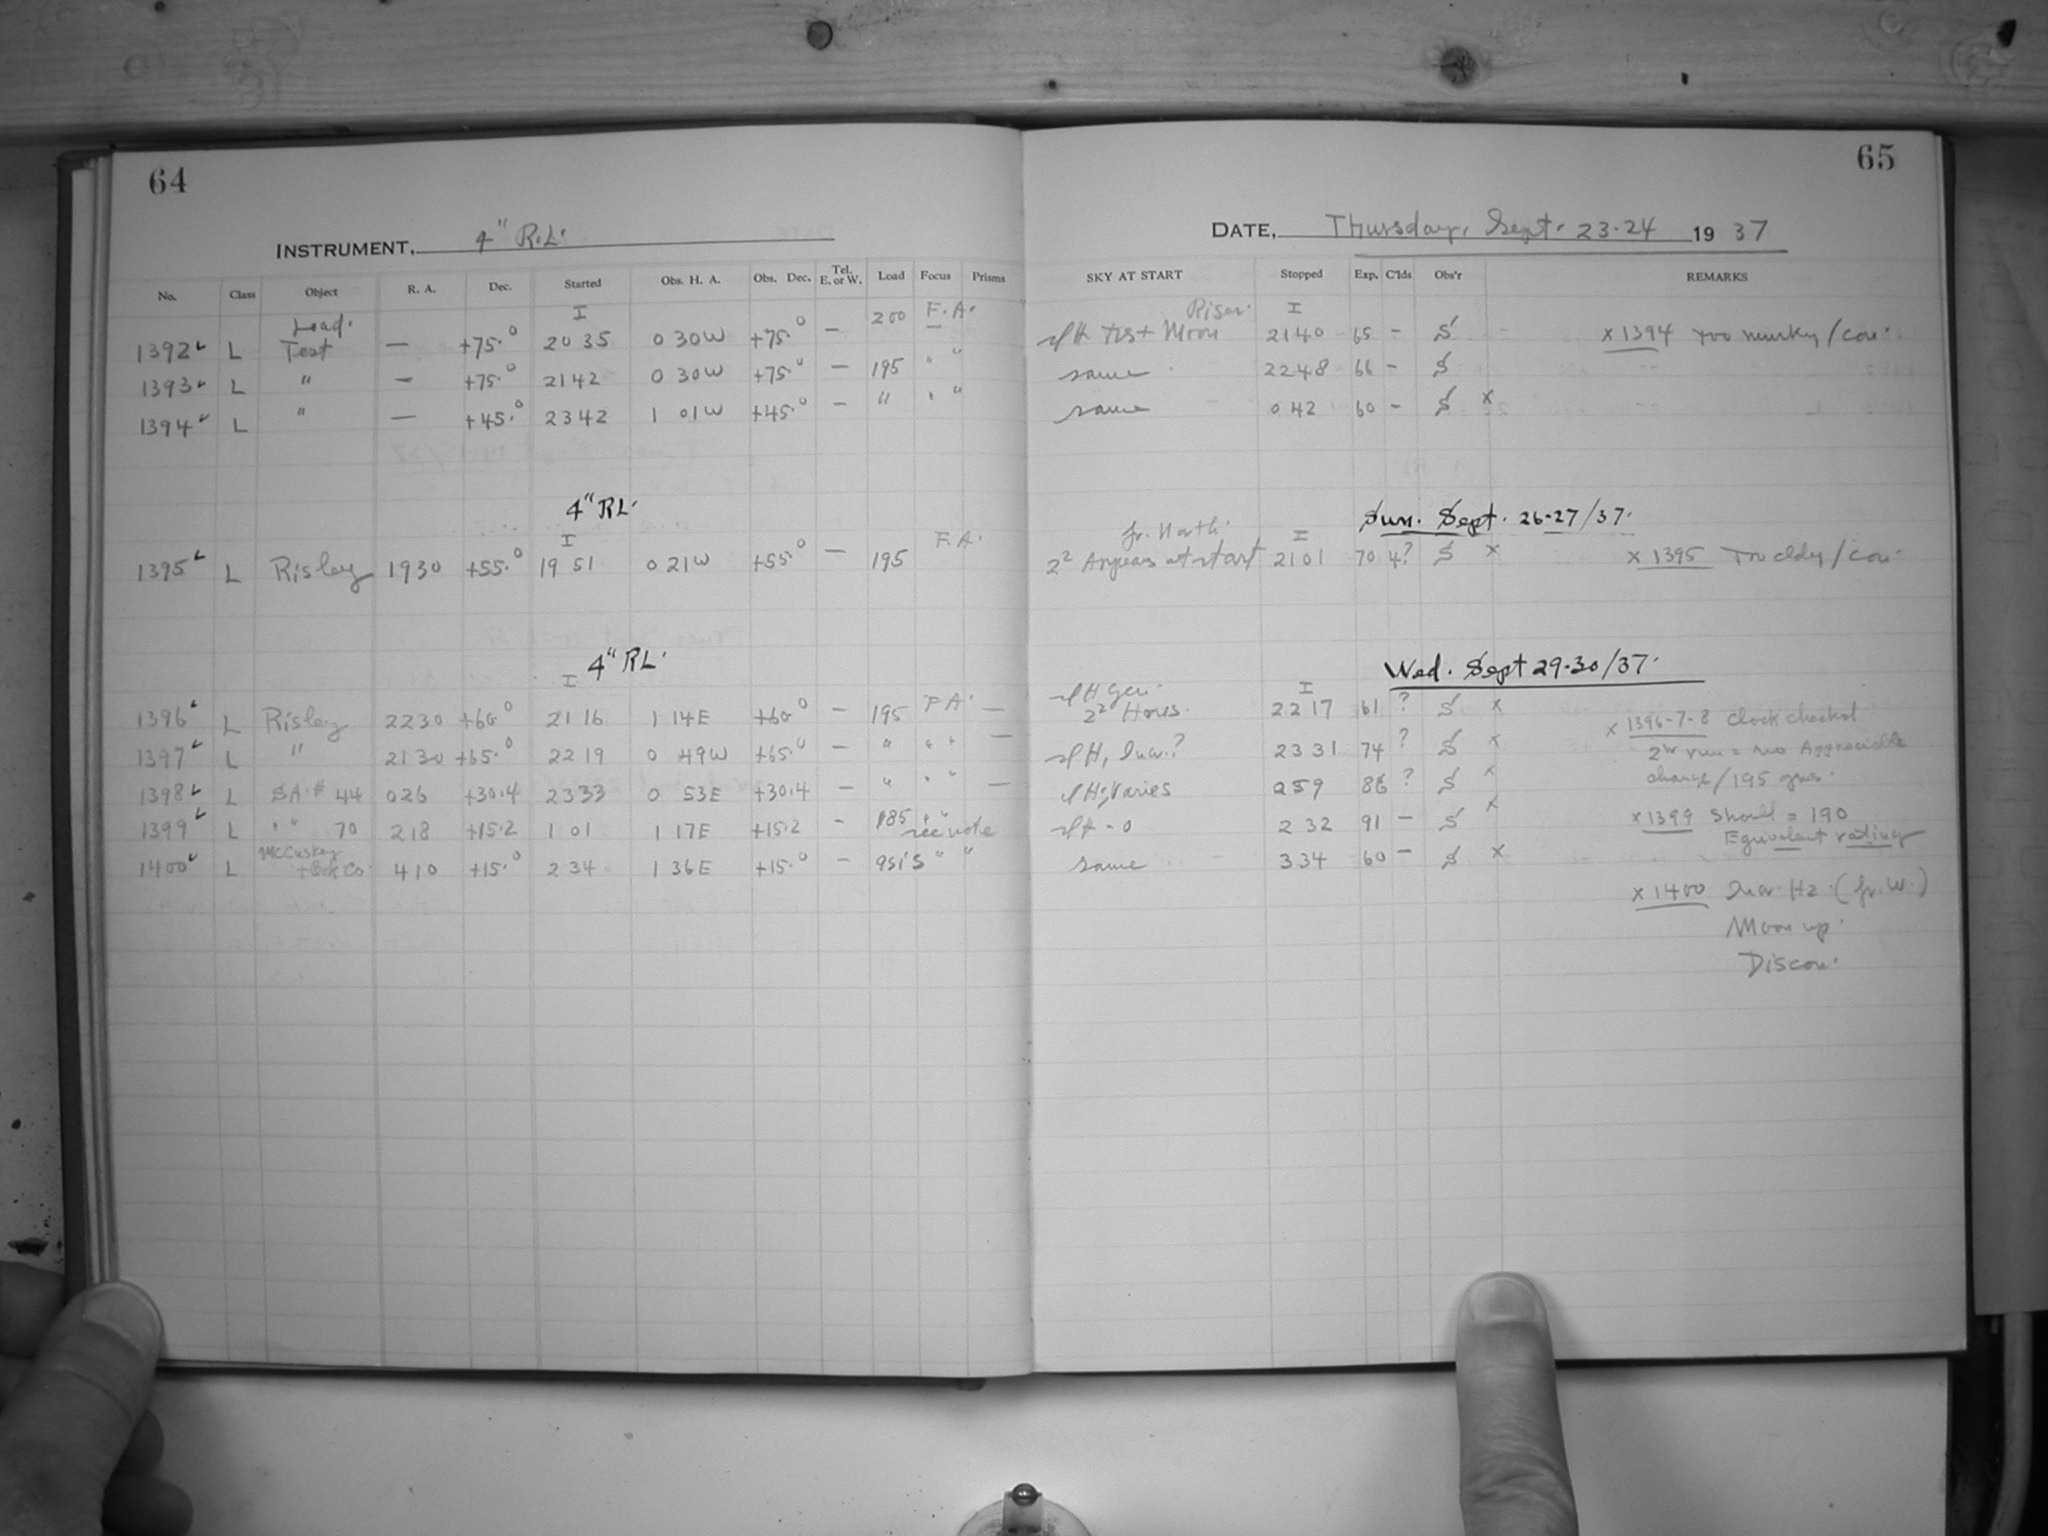 64
INSTRUMENT, 4" R.L.
No. Class Object R. A. Dec. Started Obs. H. A. Obs. Dec. Tel. E. or W. Load Focus Prisms
Load. I 200 F.A.
1392 L Test — +75.0 20 35 0 30W +75.0 — —
1393 L " — +75.0 21 42 0 30W +75.0 — 195 " "
1394 L " — +45.0 23 42 1 01W +45.0 — " " "
4" RL.
I F.A.
1395 L Risley 1930 +55.0 19 51 0 21W +55.0 — 195
4" RL.
I
1396 L Risley 2230 +60.0 21 16 1 14E +60.0 — 195 F A. —
1397 L " 2130 +65.0 22 19 0 49W +65.0 — " " " —
1398 L S.A. # 44 026 +30.4 23 33 0 53E +30.4 — " " " —
1399 L " " 70 218 +15.2 1 01 1 17E +15.2 — 185 " " see note
1400 L McCuskey 410 +15.0 2 34 1 36E +15.0 — " "
65
DATE, Thursday, Sept. 23-24 1937
SKY AT START Stopped Exp. C'lds Obs'r REMARKS
I
Moon 21 40 65 — S x 1394 Too murky/
same 22 48 66 — S
same 0 42 60 — S x
Sun. Sept. 26-27/37.
fr. North. I
2² Appears at start 21 01 70 4? S x x 1395 Too cldy/
Wed. Sept 29-30/37.
I
2² Hours. 22 17 61 ? S x x 1396-7-8 Clock checked
23 31 74 ? S x no Appreciable
Varies 0 59 86 ? S x change/195 gms.
2 32 91 — S x x 1399 Should = 190
Equivalent rating
same 3 34 60 — S x
x 1400 Hz. (fr. W.)
Moon up.
Discon.